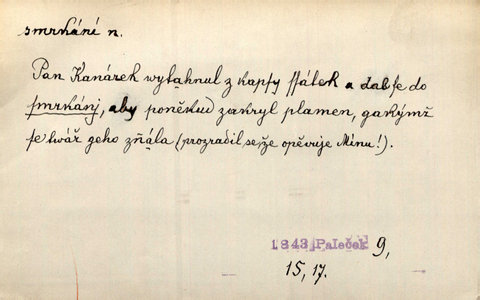 smrkání n.
Pan Kanárek wytahnul z kapsy ssátek a dal se do
smrkánj, aby poněkud zakryl plamen, gakýmž
se twář geho zňála (prozradil se, že opěwuje Minu!).
1843 Paleček 9,
15, 17.